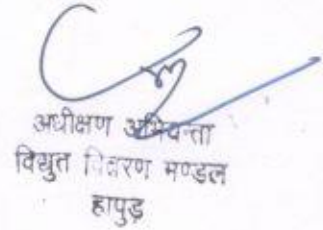 अधीक्षण अभियन्ता
विद्युत वितरण मण्डल
हापुड़